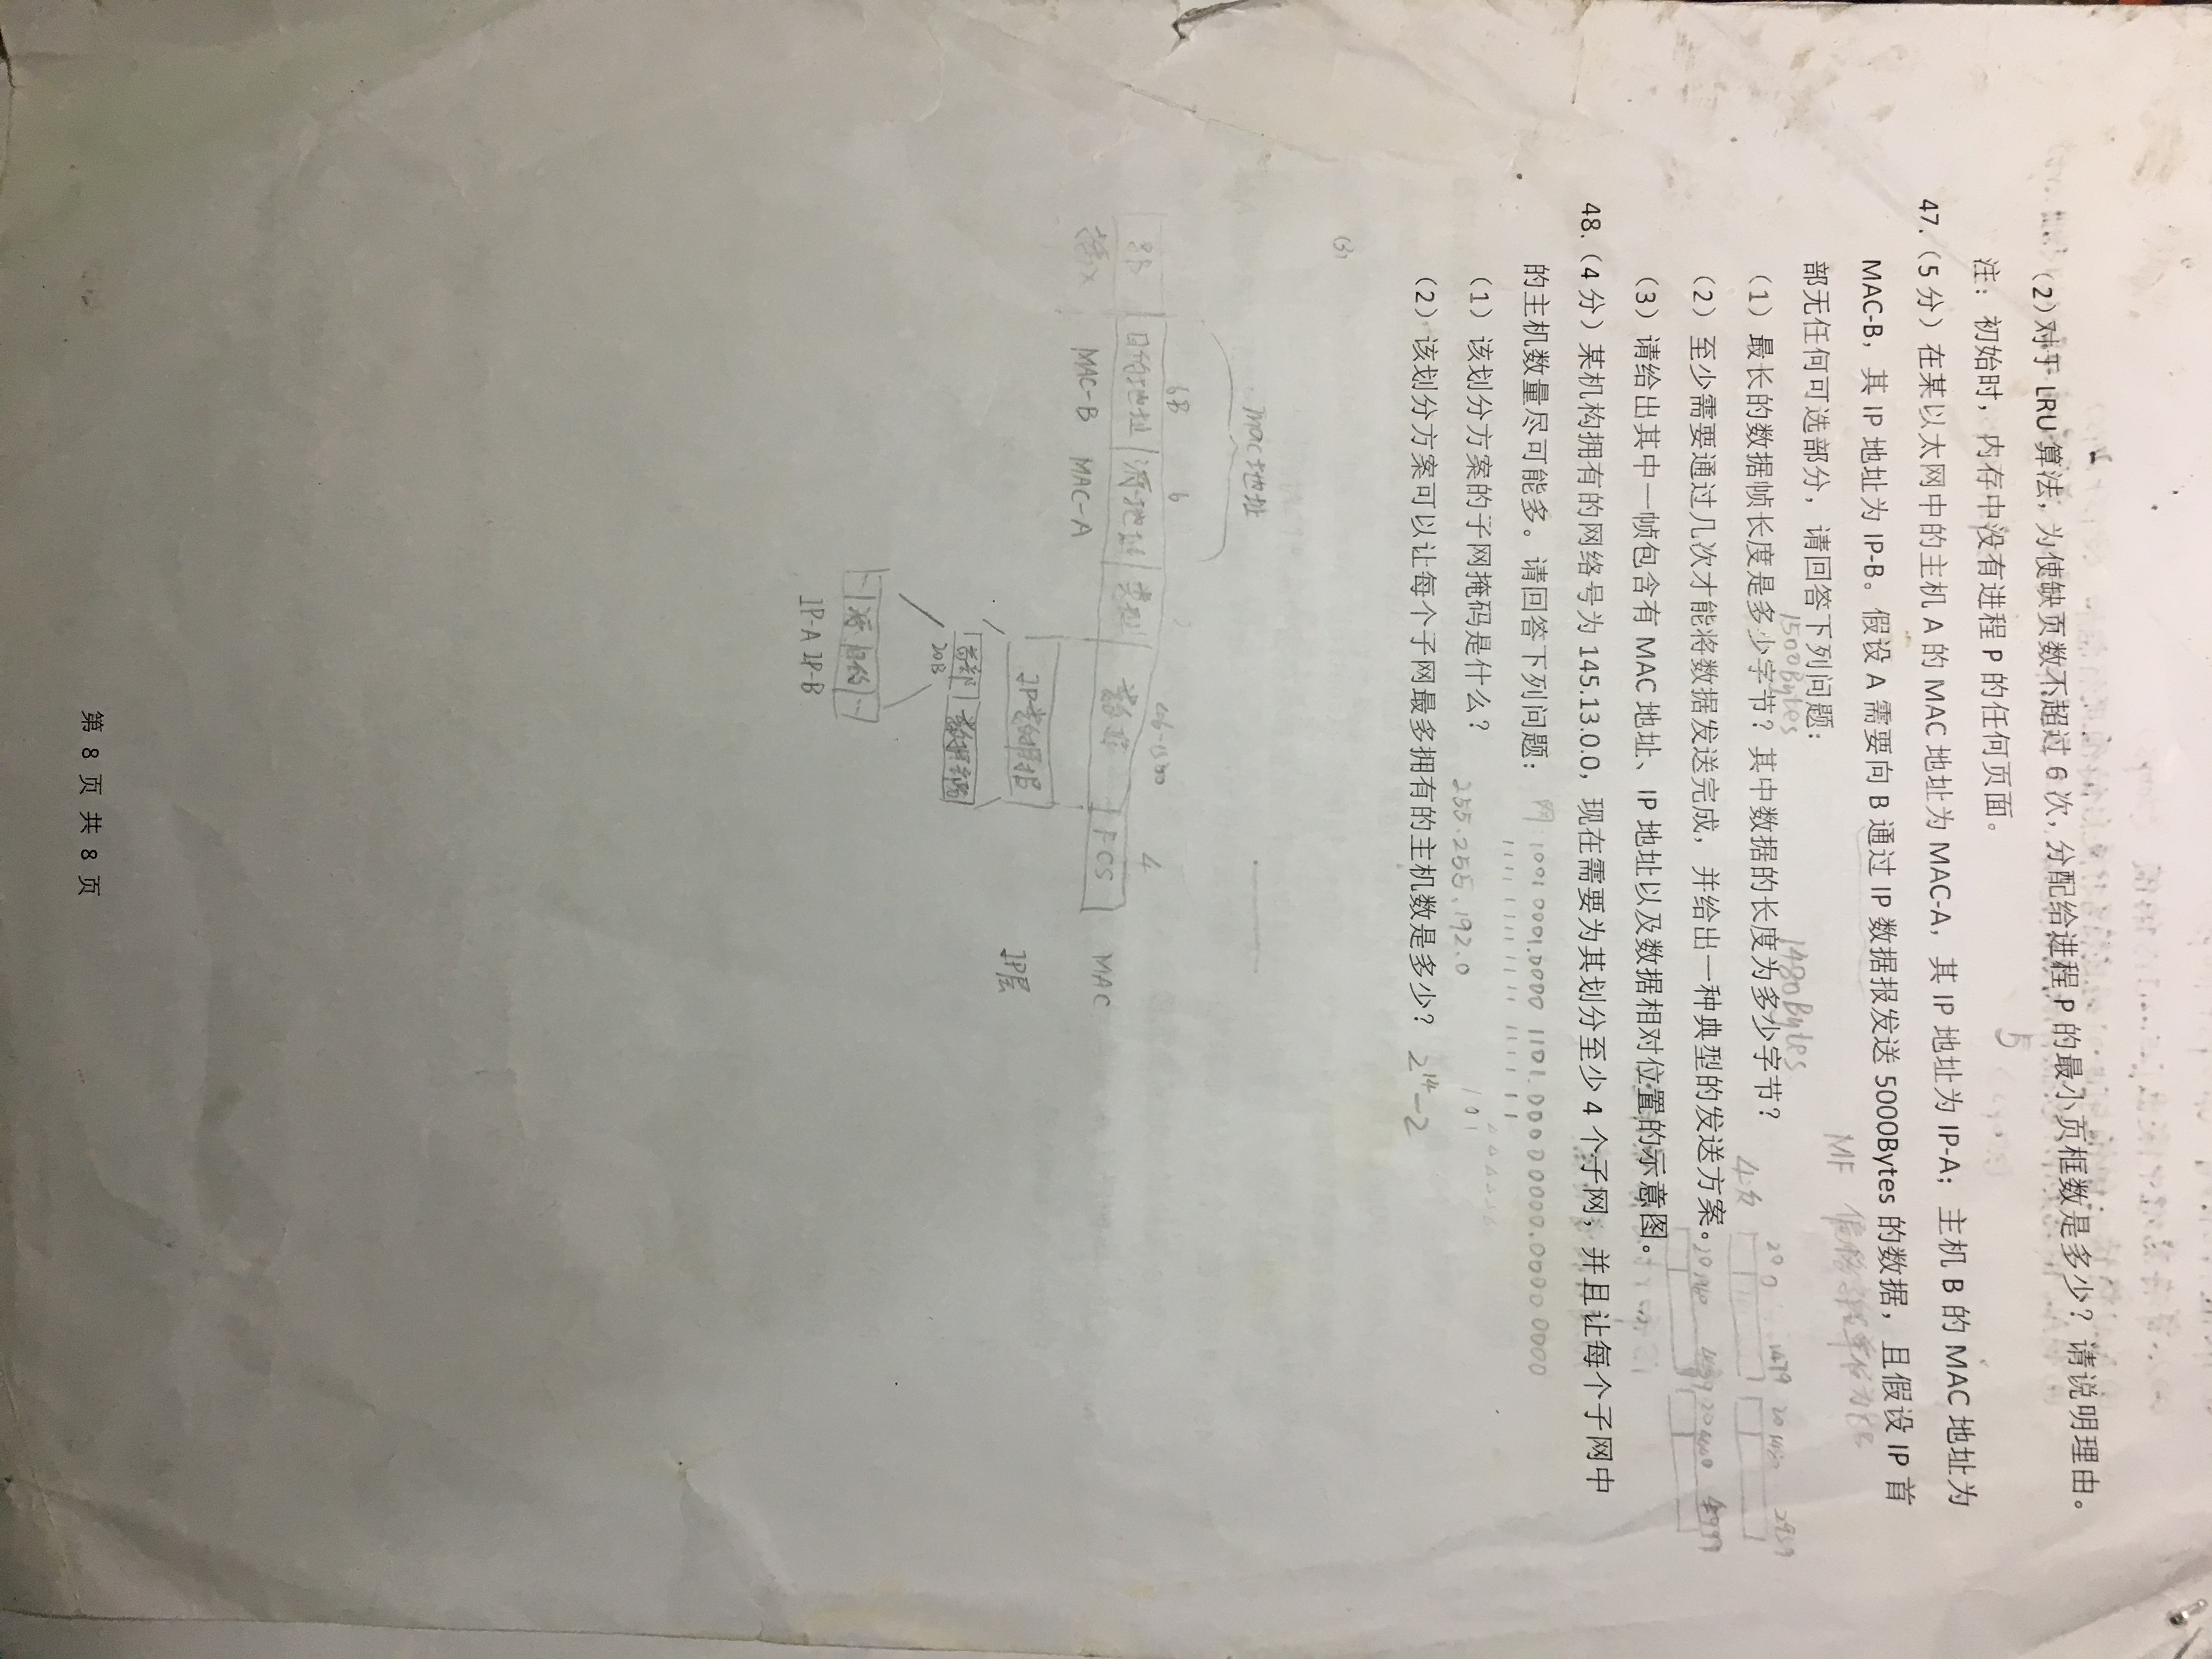 (2)对于 LRU 算法，为使缺页数不超过 6 次，分配给进程 P 的最小页框数是多少？请说明理由。
5
注：初始时，内存中没有进程 P 的任何页面。
47.（5 分）在某以太网中的主机 A 的 MAC 地址为 MAC-A，其 IP 地址为 IP-A；主机 B 的 MAC 地址为
MAC-B，其 IP 地址为 IP-B。假设 A 需要向 B 通过 IP 数据报发送 5000Bytes 的数据，且假设 IP 首
MF 偏移 单位为8B
部无任何可选部分，请回答下列问题：
1500Bytes 1480Bytes
（1）最长的数据帧长度是多少字节？其中数据的长度为多少字节？
20 0 1479 20 1480 2959
4次
（2）至少需要通过几次才能将数据发送完成，并给出一种典型的发送方案。
20 4439 20 4440 4999
（3）请给出其中一帧包含有 MAC 地址、IP 地址以及数据相对位置的示意图。
48.（4 分）某机构拥有的网络号为 145.13.0.0，现在需要为其划分至少 4 个子网，并且让每个子网中
的主机数量尽可能多。请回答下列问题：
网 1001 0001.0000 1101.0000 0000.0000 0000
1111 1111 1111 1111 11
（1）该划分方案的子网掩码是什么？
255.255.192.0
101
（2）该划分方案可以让每个子网最多拥有的主机数是多少？ 2¹⁴-2
(3)
MAC地址
6B 6 2 46-1500 4
8B 目的地址 源地址 类型 数据 FCS MAC
MAC-B MAC-A
IP数据报 IP层
首部 数据部分
20B
… 源 目的 …
IP-A IP-B
第 8 页 共 8 页